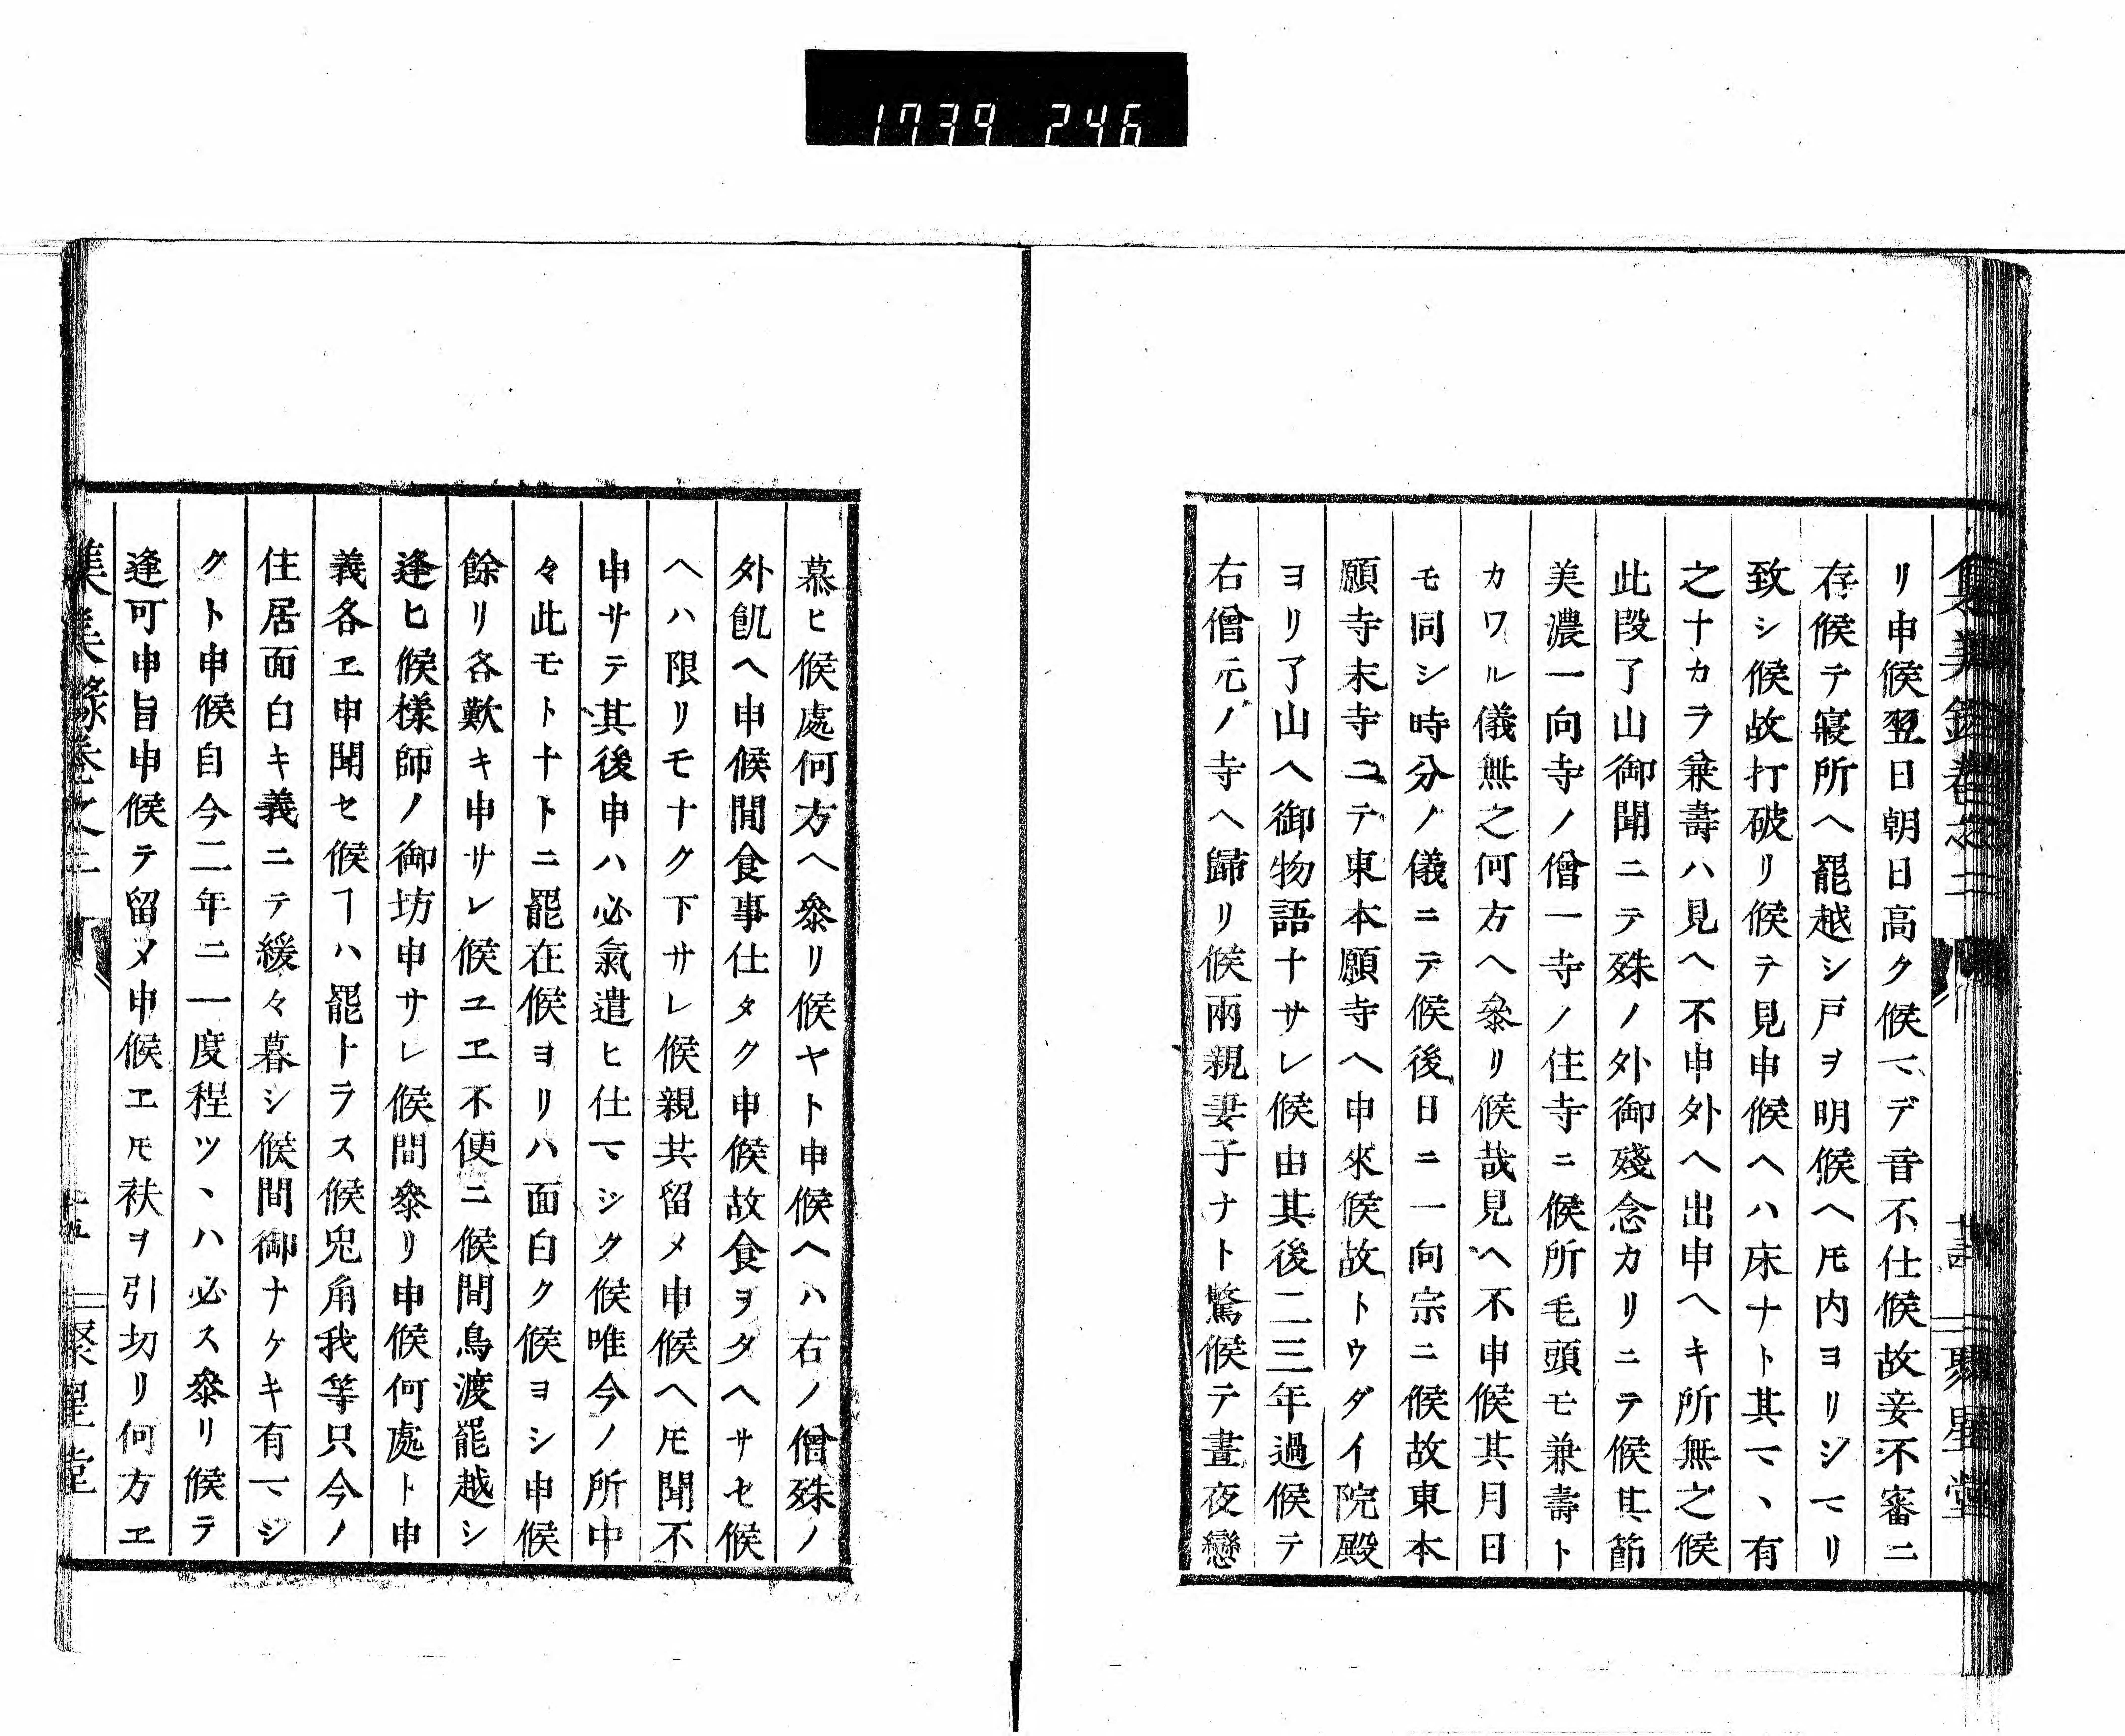 1739 246
リ申候翌日朝日高ク候マデ音不仕候故妾不審ニ
存候テ寢所へ罷越シ戸ヲ明候へ𪜈内ヨリシマリ
致シ候故打破リ候テ見申候ヘハ床ナト其マヽ有
之ナカラ兼壽ハ見へ不申外へ出申ヘキ所無之候
此段了山御聞ニテ殊ノ外御殘念カリニテ候其節
美濃一向寺ノ僧一寺ノ住寺ニ候所毛頭モ兼壽ト
カワル儀無之何方へ參リ候哉見へ不申候其月日
モ同シ時分ノ儀ニテ候後日ニ一向宗ニ候故東本
願寺末寺ニテ東本願寺へ申來候故トウダイ院殿
ヨリ了山へ御物語ナサレ候由其後二三年過候テ
右僧元ノ寺へ歸リ候兩親妻子ナト驚候テ晝夜戀
慕ヒ候處何方へ參リ候ヤト申候ヘハ右ノ僧殊ノ
外飢へ申候間食事仕タク申候故食ヲタヘサセ候
ヘハ限リモナク下サレ候親共留メ申候へ𪜈聞不
申サテ其後申ハ必氣遣ヒ仕マシク候唯今ノ所中
々此モトナトニ罷在候ヨリハ面白ク候ヨシ申候
餘リ各歎キ申サレ候ユヱ不便ニ候間鳥渡罷越シ
逢ヒ候樣師ノ御坊申サレ候間參リ申候何處ト申
義各ヱ申聞セ候ヿハ罷トラス候兎角我等只今ノ
住居面白キ義ニテ緩々暮シ候間御ナケキ有マシ
クト申候自今二年ニ一度程ツヽハ必ス參リ候テ
逢可申旨申候テ留メ申候ヱ𪜈袂ヲ引切リ何方ヱ